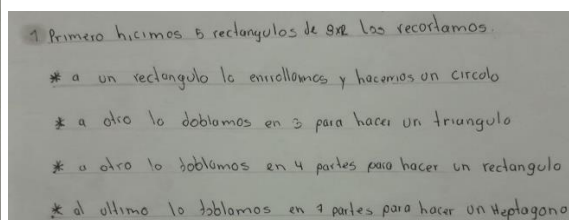 1 Primero hicimos 5 rectangulos de 9x2 los recortamos.
* a un rectangulo lo enrrollamos y hacemos un circolo
* a otro lo doblamos en 3 para hacer un triungulo
* a otro lo doblamos en 4 partes para hacer un rectangulo
* al ultimo lo doblamos en 7 partes para hacer un Heptagono